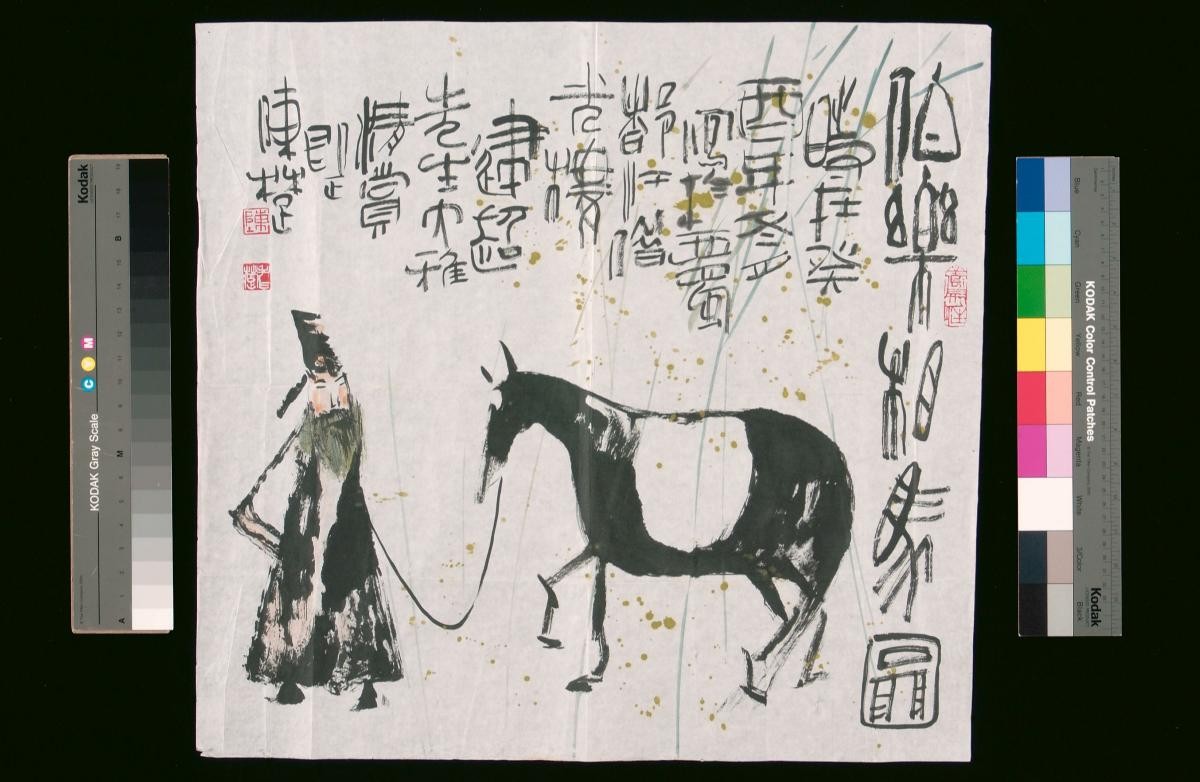 伯樂相馬圖
時在癸
酉年冬月
寫於西蜀
都江
樓
建超
先生大雅
清賞
即正
陳
陳
Kodak
KODAK Gray Scale
C Y M
A 1 2 3 4 5 6 M 8 9 10 11 12 13 14 15 B 17 18 19
KODAK Color Control Patches
Kodak
Blue
Cyan
Green
Yellow
Red
Magenta
White
3/Color
Black